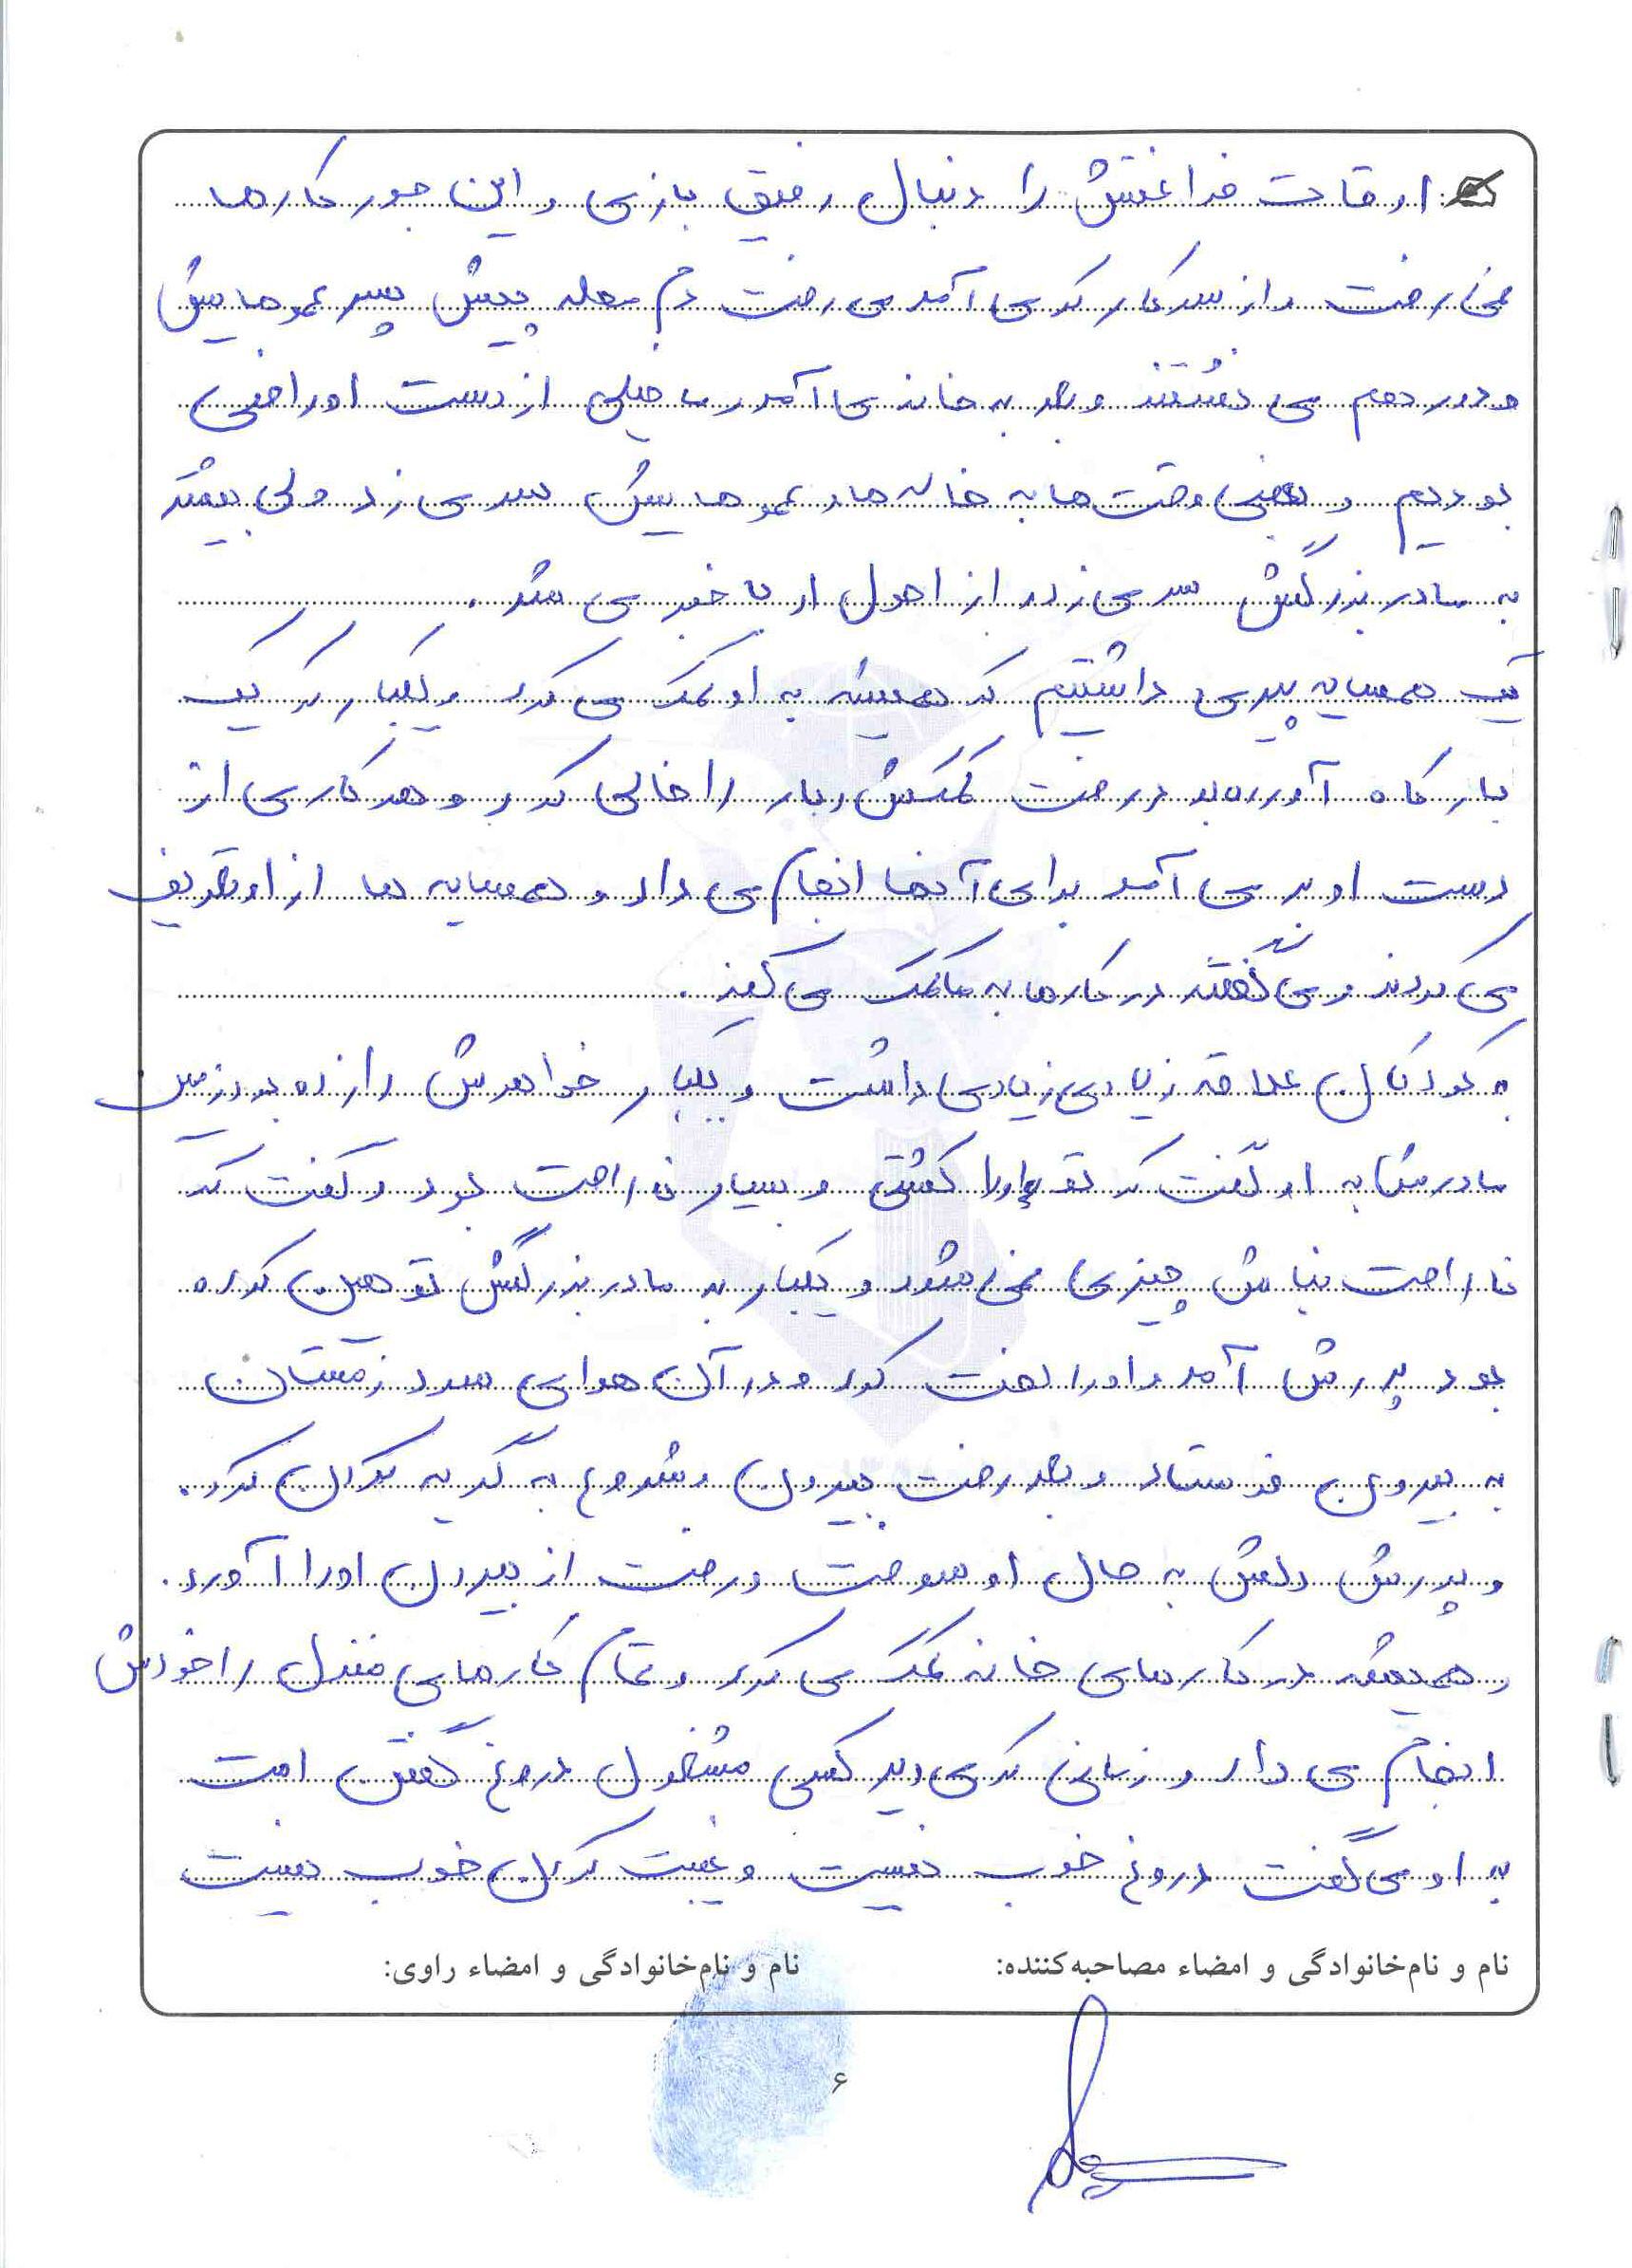 اوقات فراغتش را دنبال رفیق بازی و این جور کارها
نمی رفت و از سر کار که می آمد می رفت دم محله پیش پسر عموهایش
و دور هم می نشستند و بعد به خانه می آمد و ما خیلی از دست او راضی
بودیم و بعضی وقت ها به خاله ها و عموهایش سر می زد ولی بیشتر
به مادر بزرگش سر می زد و از احول او با خبر می شد.
یک همسایه پیری داشتیم که همیشه به او کمک می کرد و یکبار که یک
بار کاه آورده بود رفت کمکش و بار را خالی کرد و هر کاری از
دست او بر می آمد برای آنها انجام می داد و همسایه ها از او تعریف
می کردند و می گفتند در کارها به ما کمک می کند.
به کودکان علاقه زیادی زیادی داشت و یکبار خواهرش را زده بود زمین
مادرش به او گفت که تو او را کشتی و بسیار ناراحت بود و گفت که
ناراحت نباش چیزی نمی شود و یکبار به مادر بزرگش توهین کرده
بود پدرش آمد و او را لخت کرد و در آن هوای سرد زمستان
به بیرون فرستاد و بعد رفت بیرون و شروع به گریه کردن کرد.
و پدرش دلش به حال او سوخت و رفت از بیرون او را آورد.
و همیشه در کارهای خانه کمک می کرد و تمام کارهای منزل را خودش
انجام می داد و زمانی که می دید کسی مشغول دروغ گفتن است
به او می گفت دروغ خوب نیست و غیبت کردن خوب نیست
نام و نام‌خانوادگی و امضاء مصاحبه‌کننده: نام و نام‌خانوادگی و امضاء راوی:
۶